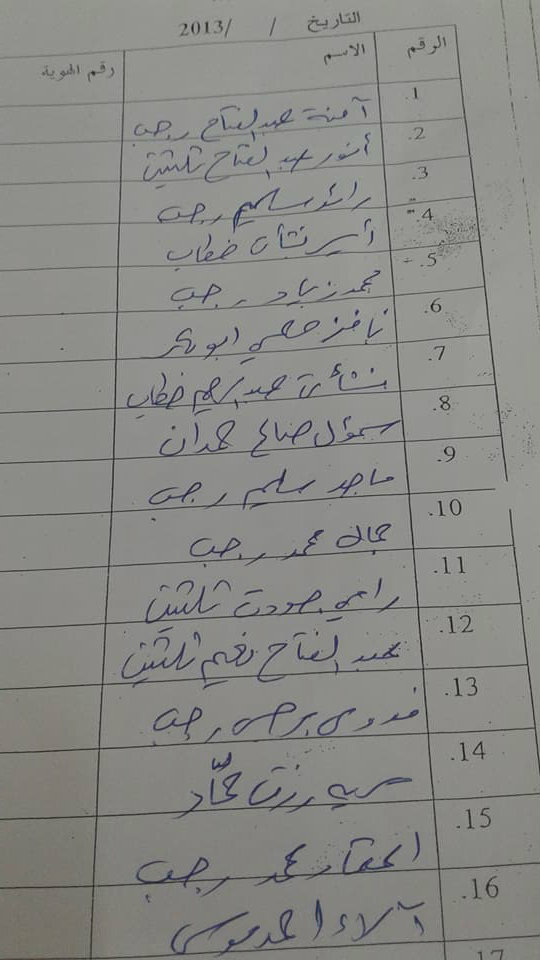 التاريخ / / 2013
الرقم الاسم رقم الهوية
1. آمنة عبد الفتاح رجب
2. أنور عبد الفتاح ثلثين
3. رائد سليم رجب
4. أسير نشأت خطاب
5. محمد زياد رجب
6. نافز حلمي ابو بكر
7. نشأت عبد الرحيم خطاب
8. سموأل صالح حمدان
9. ماجد سليم رجب
10. جمال محمد رجب
11. رامي جودت ثلثين
12. عبد الفتاح نعيم ثلثين
13. فدوى رجب
14. رزق حمّاد
15. محمد رجب
16. آلاء احمد موسى
17